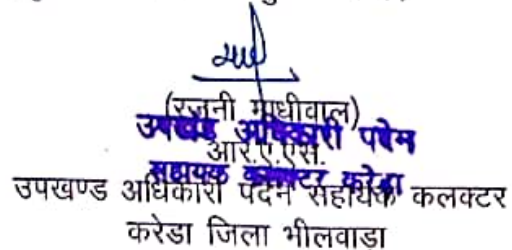 (रजनी माधीवाल)
उपखंड अधिकारी पदेन
आर.ए.एस.
सहायक कलक्टर करेडा
उपखण्ड अधिकारी पदेन सहायक कलक्टर
करेडा जिला भीलवाडा